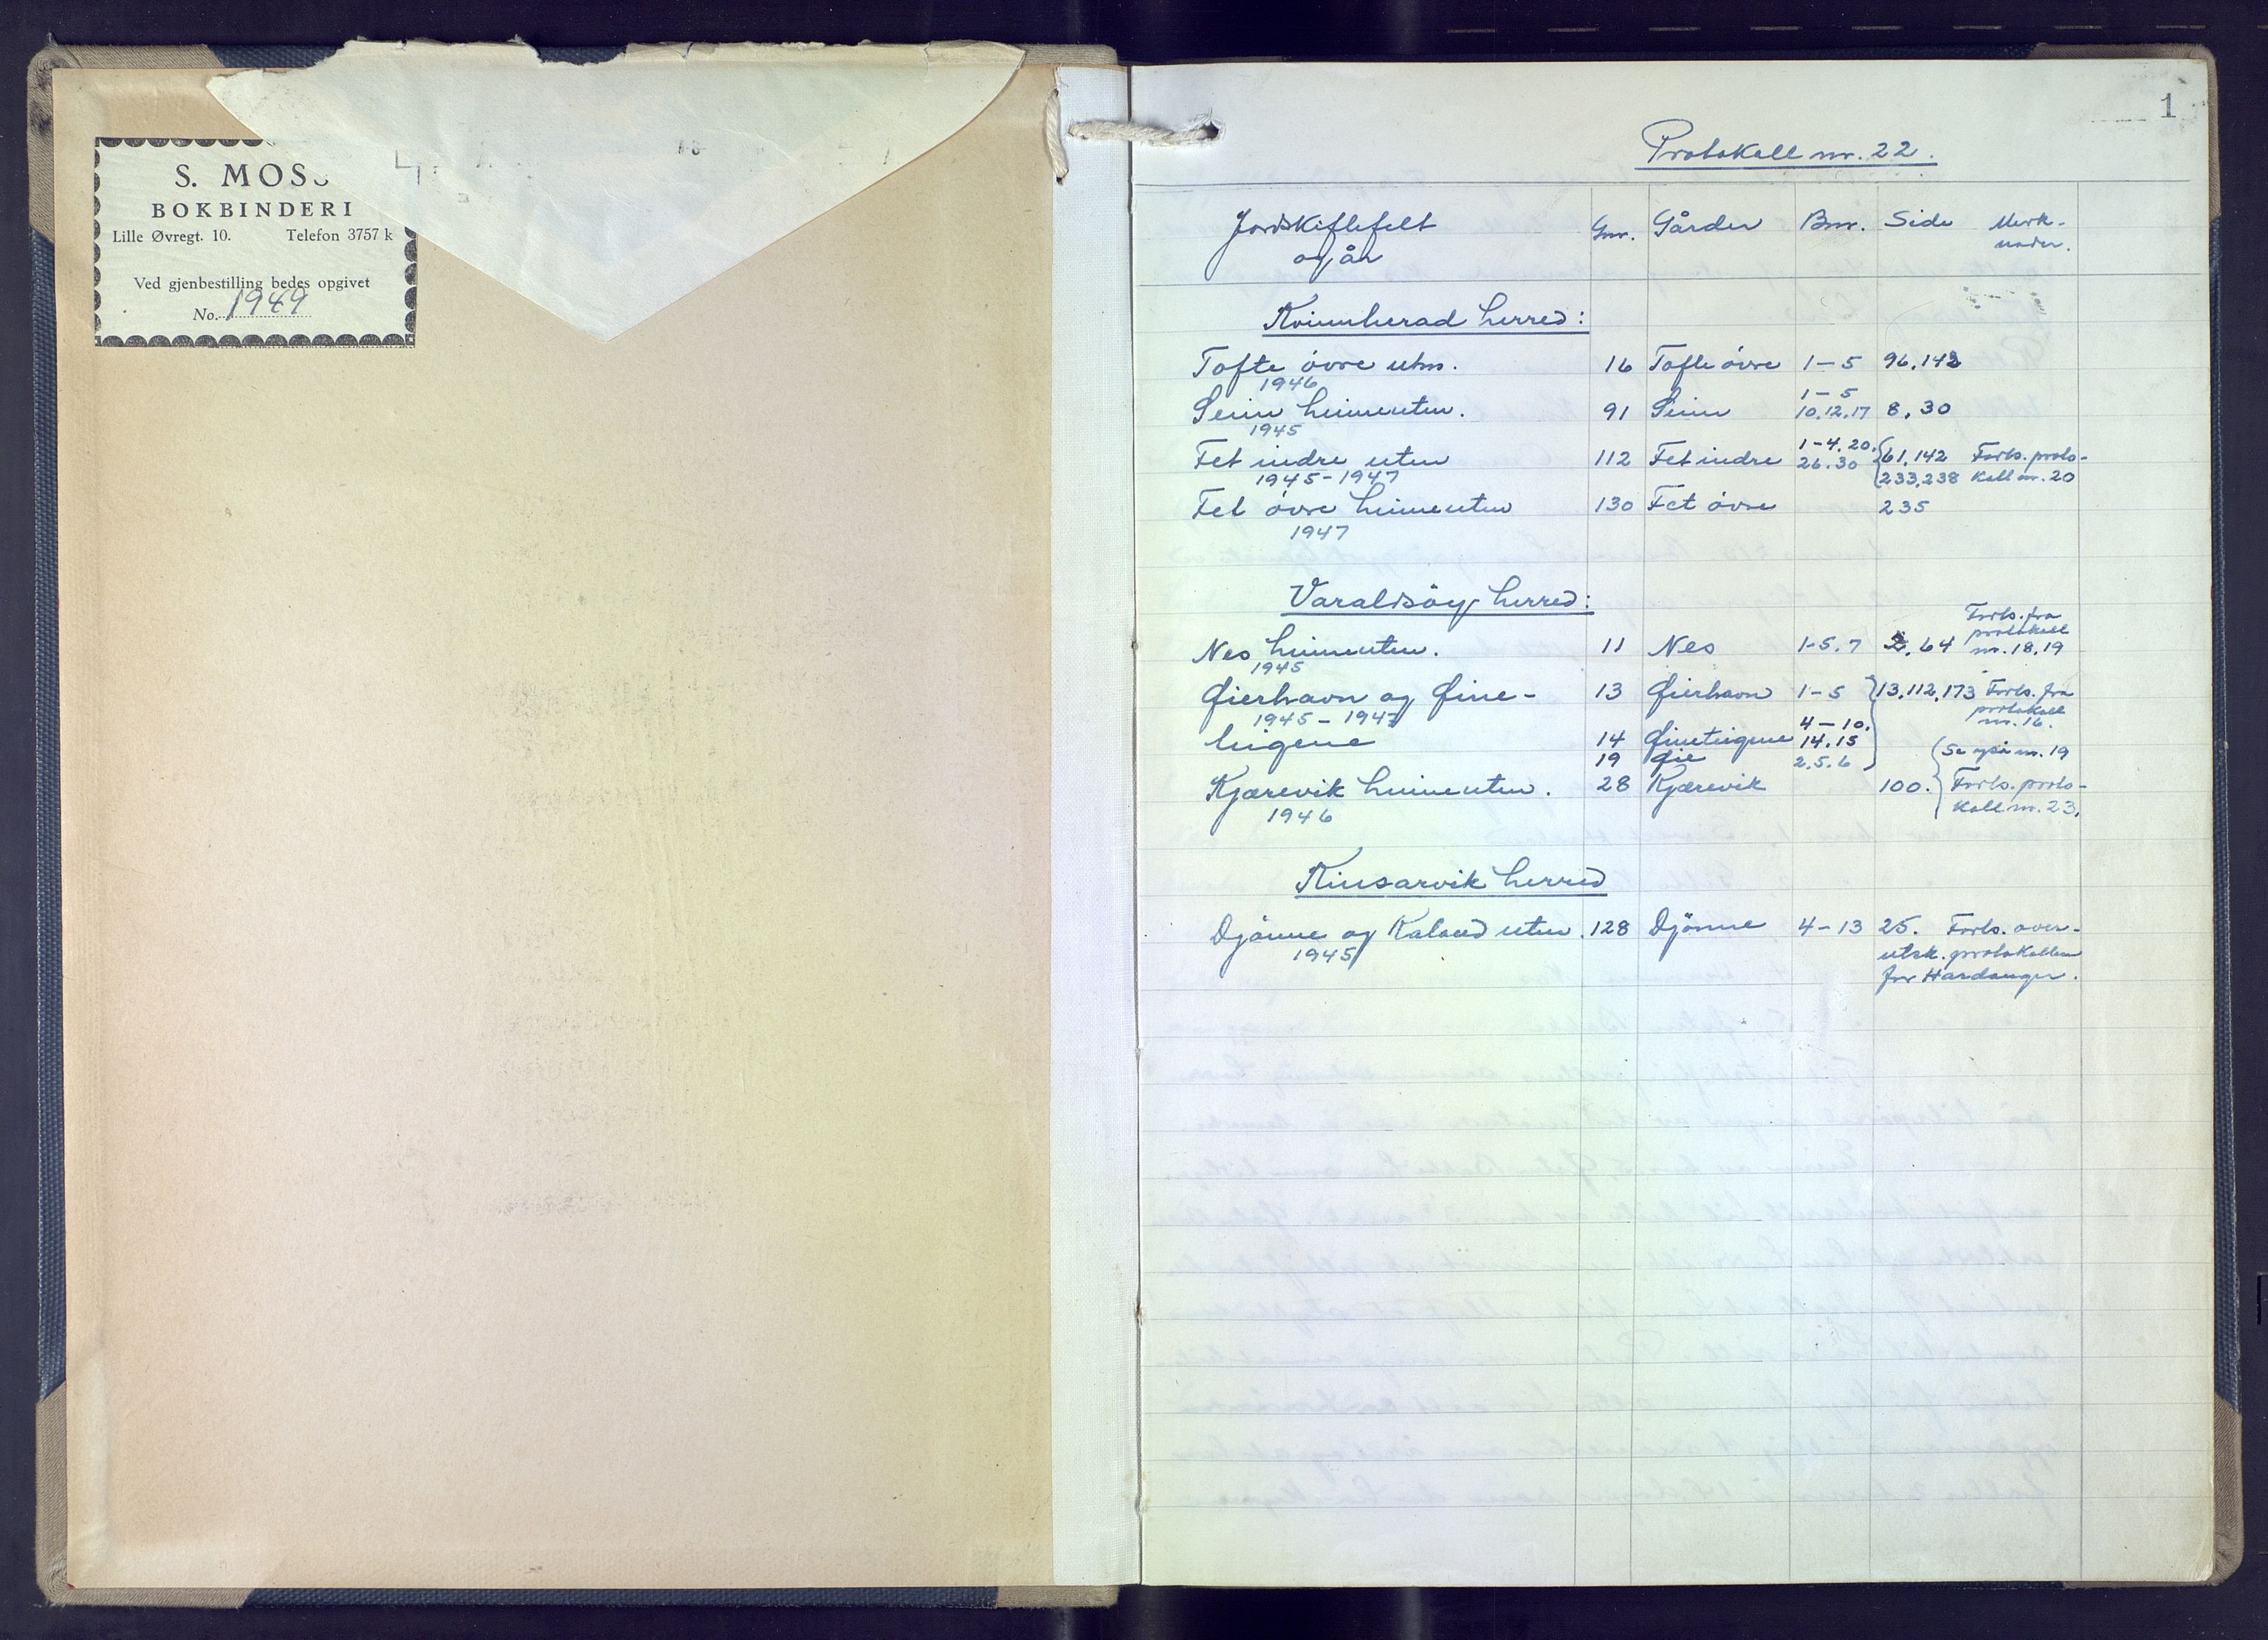 S. MOS
BOKBINDERI
Lille Øvregt. 10. Telefon 3757 k
Ved gjenbestilling bedes opgivet
No. 1949
1
Protokoll nr. 22.
Jordskiftefelt Gnr. Gårder Bnr. Side Merk-
og år nader.
Kvinnherad herred:
Tofte övre utm. 16 Tofte övre 1-5 96, 142
1946
1-5
Seim heimeutm. 91 Seim 10, 12, 17 8, 30
1945
1-4, 20,
Fet indre utm 112 Fet indre 26, 30 61, 142 Forts. proto-
1945-1947 233, 238 koll nr. 20
Fet övre heimeutm 130 Fet övre 235
1947
Varaldsöy herred:
Forts. fra
protokoll
Nes heimeutm. 11 Nes 1-5, 7 2, 64 nr. 18, 19
1945
Øierhavn og Øine- 13 Øierhavn 1-5 13, 112, 173 Forts. fra
1945-1947 protokoll
nr. 16.
4-10,
teigene 14 Øineteigene 14, 15
19 Øie 2, 5, 6 (Se også nr. 19
Kjærevik heimeutm. 28 Kjærevik 100. Forts. proto-
1946 koll nr. 23.
Kinsarvik herred
Djönne og Kaland utm. 128 Djönne 4-13 25. Forts. over-
1945 utsk. protokollen
for Hardanger.